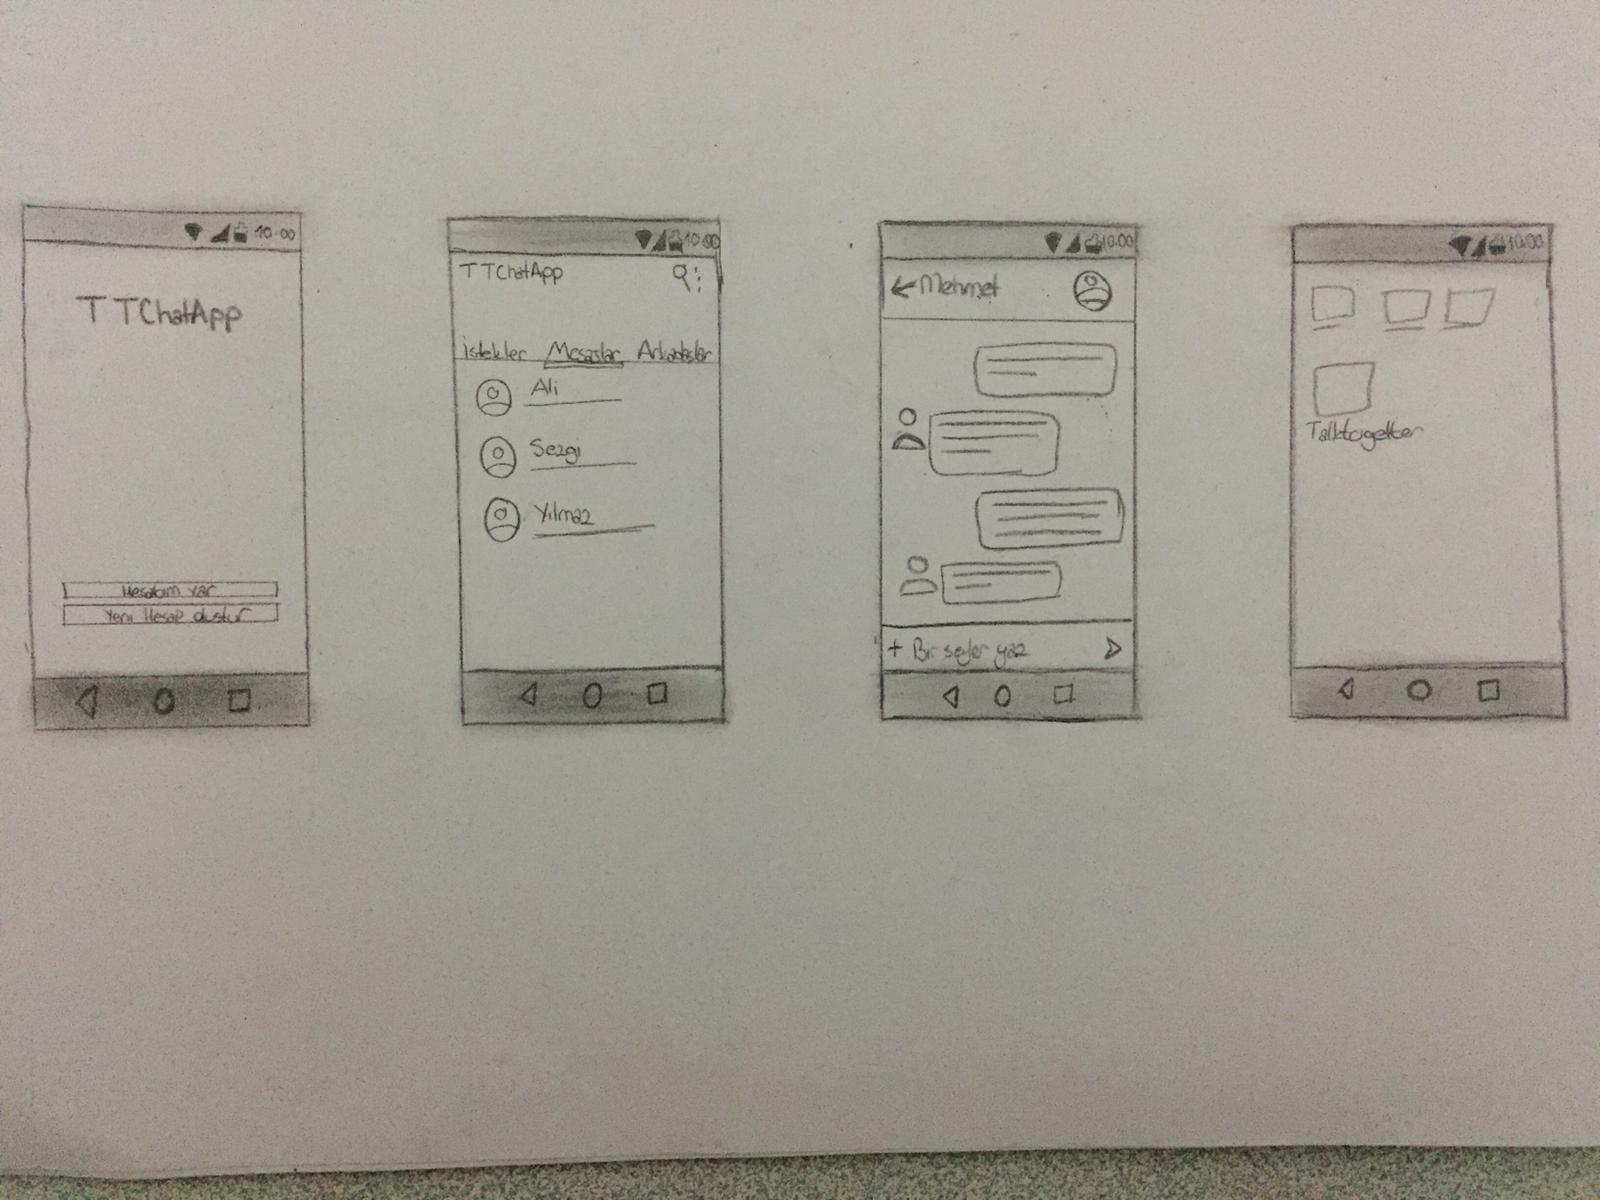 10:00
TTChatApp
Hesabım var
Yeni Hesap oluştur
10:00
TTChatApp
İstekler Mesajlar Arkadaşlar
Ali
Sezgi
Yılmaz
10:00
Mehmet
+ Bir şeyler yaz
10:00
Talktogether